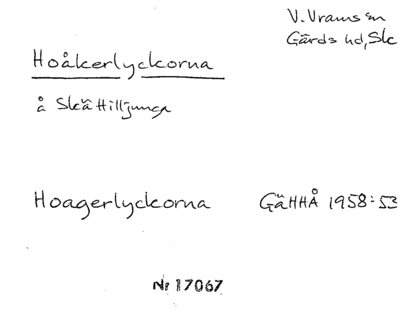 V. Vrams sn
Gärds hd, Sk
Hoåkerlyckorna
å Skättilljunga
Hoagerlyckorna GäHHÅ 1958:53
Nr 17067